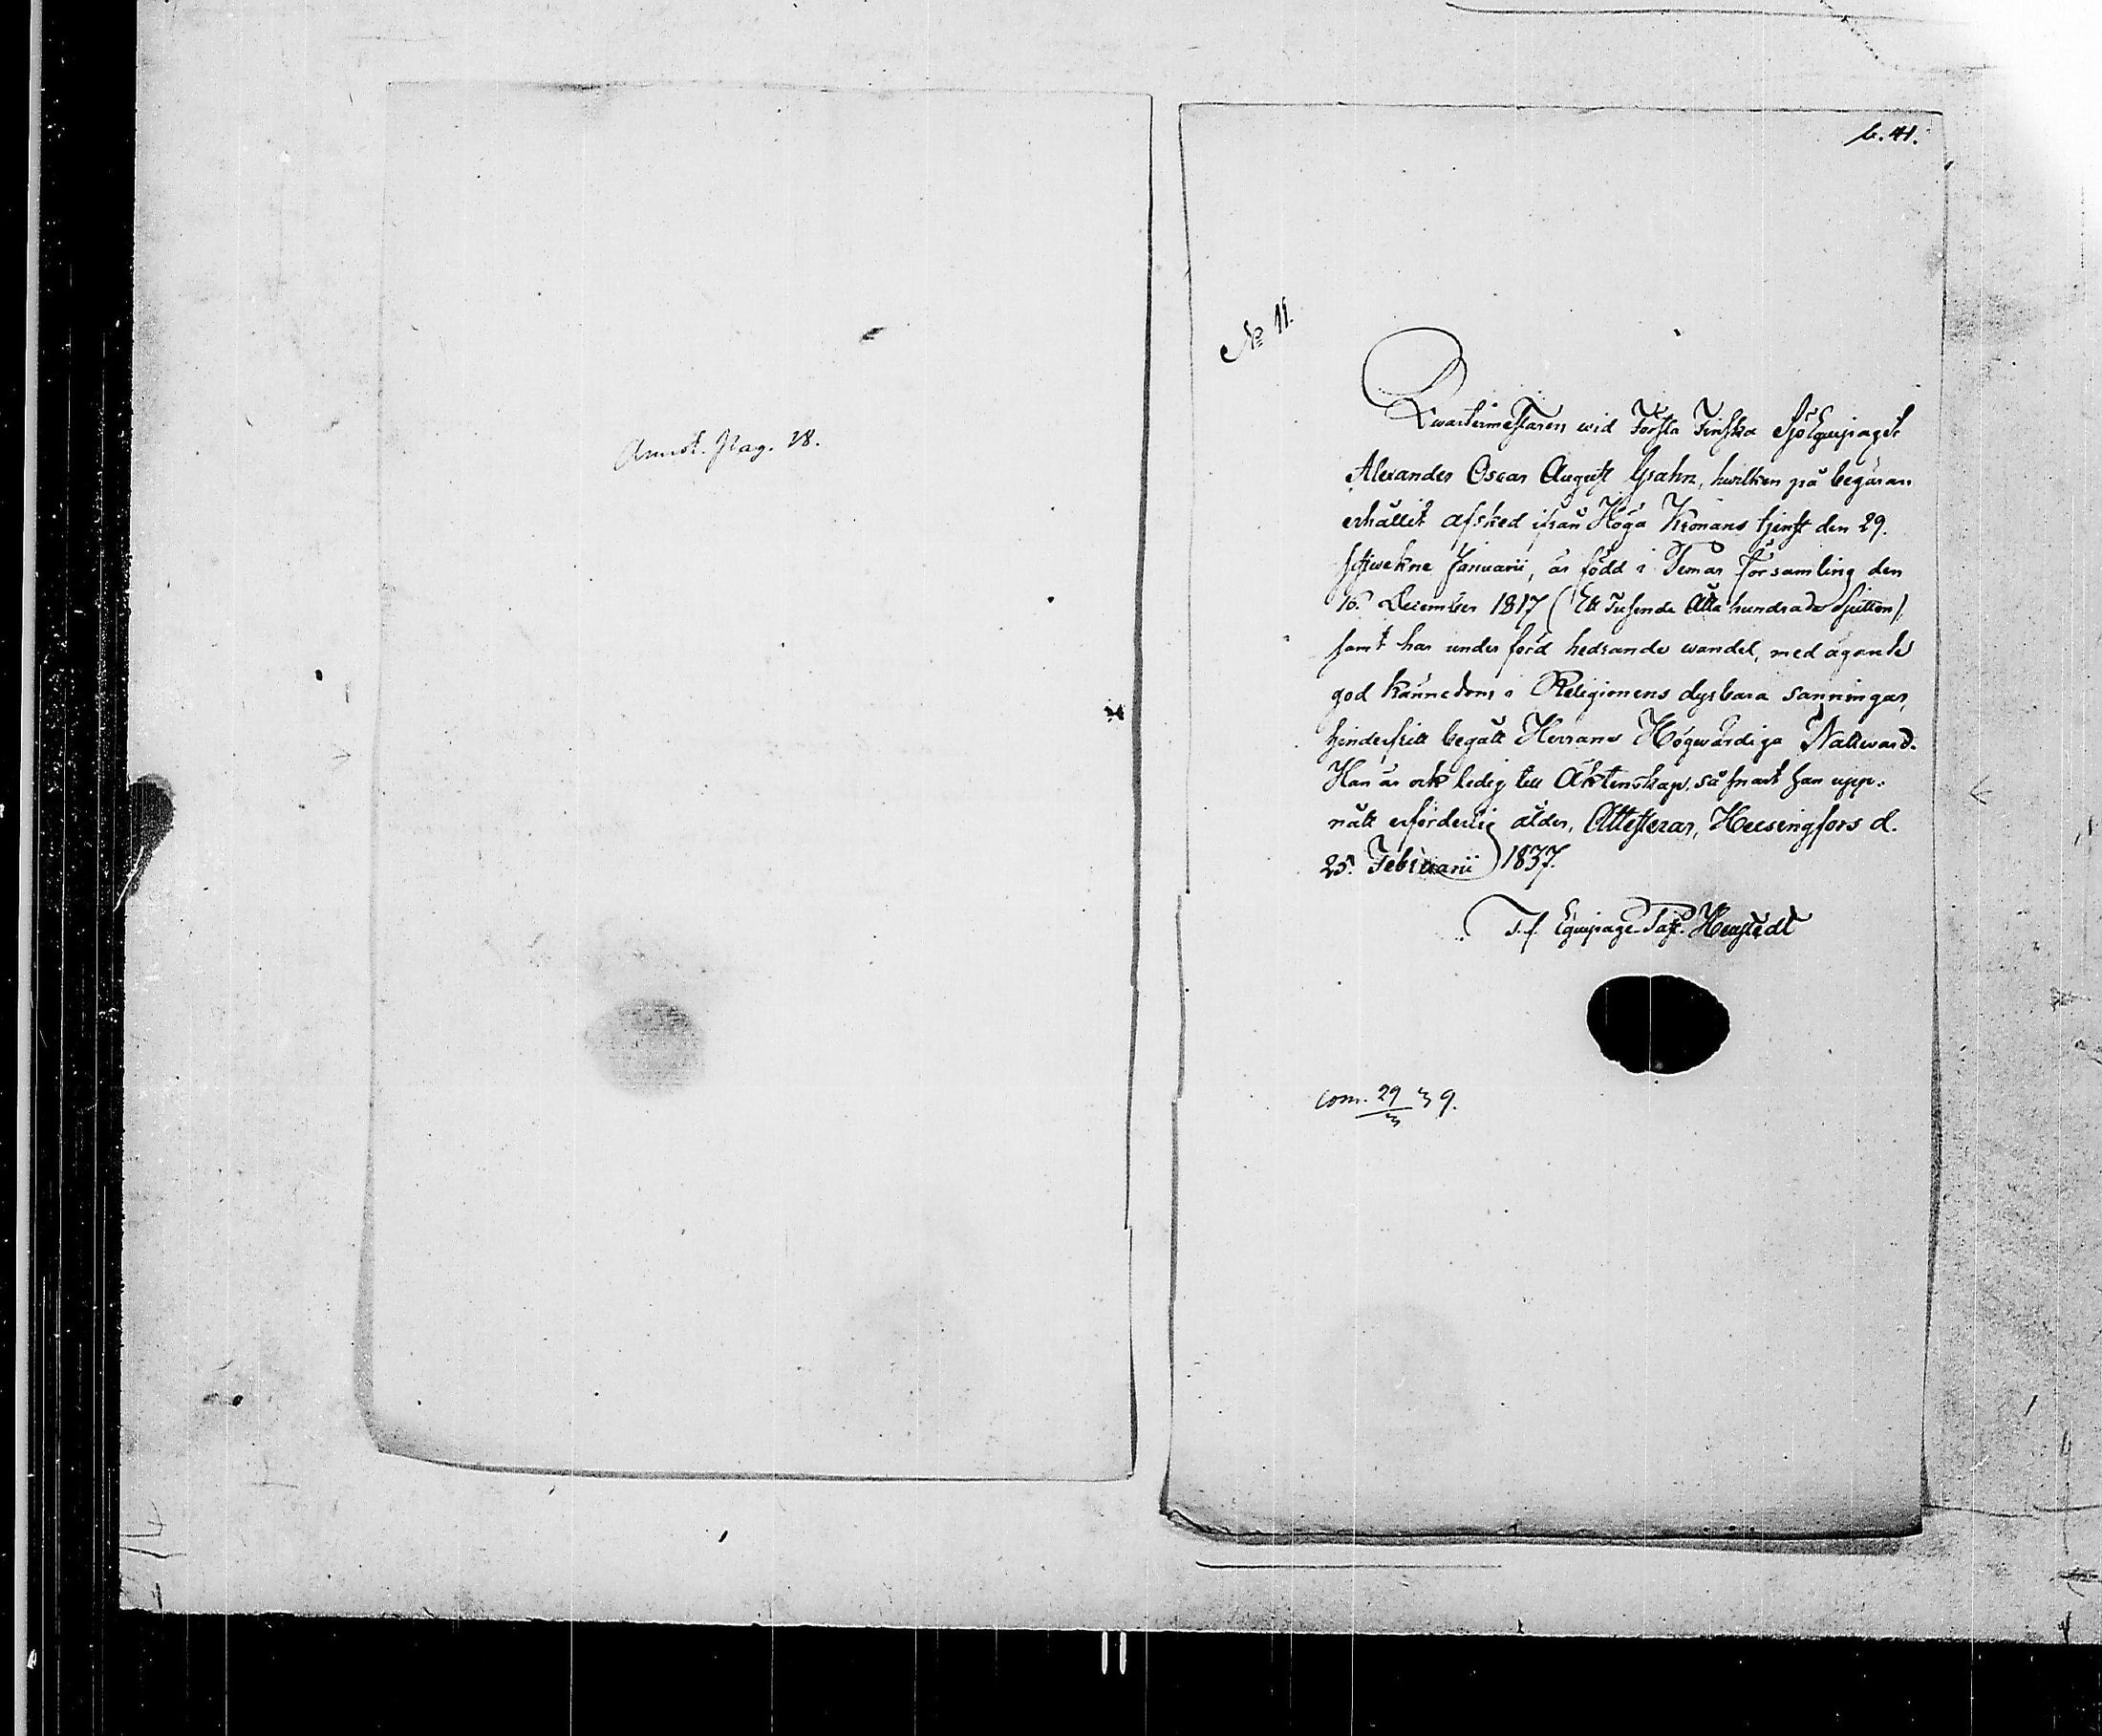 Annot. Pag. 28.
b. 41.
No 11.
Qvartermästaren wid Första Finska Sjö Equipaget
Alexander Oscar August Grahn, hwilken på begäran
erhållit afsked ifrån Höga Kronans tjenst den 29.
sistwekne Januarii, är född i Femar Församling den
16. December 1817 (Ett Tusende Åtta hundrade Sjutton)
samt har under förd hedrande wandel, med ägande
god kännedom i Religionens dyrbara sanningar,
hinderfritt begått Herrans Högwärdiga Nattward.
Han är ock ledig till Äktenskap, så snart han upp-
nått erforderlig ålder, Attesterar, Helsingfors d.
25. Februarii 1837.
T.f. Equipage-Past.
com. 29/3 39.